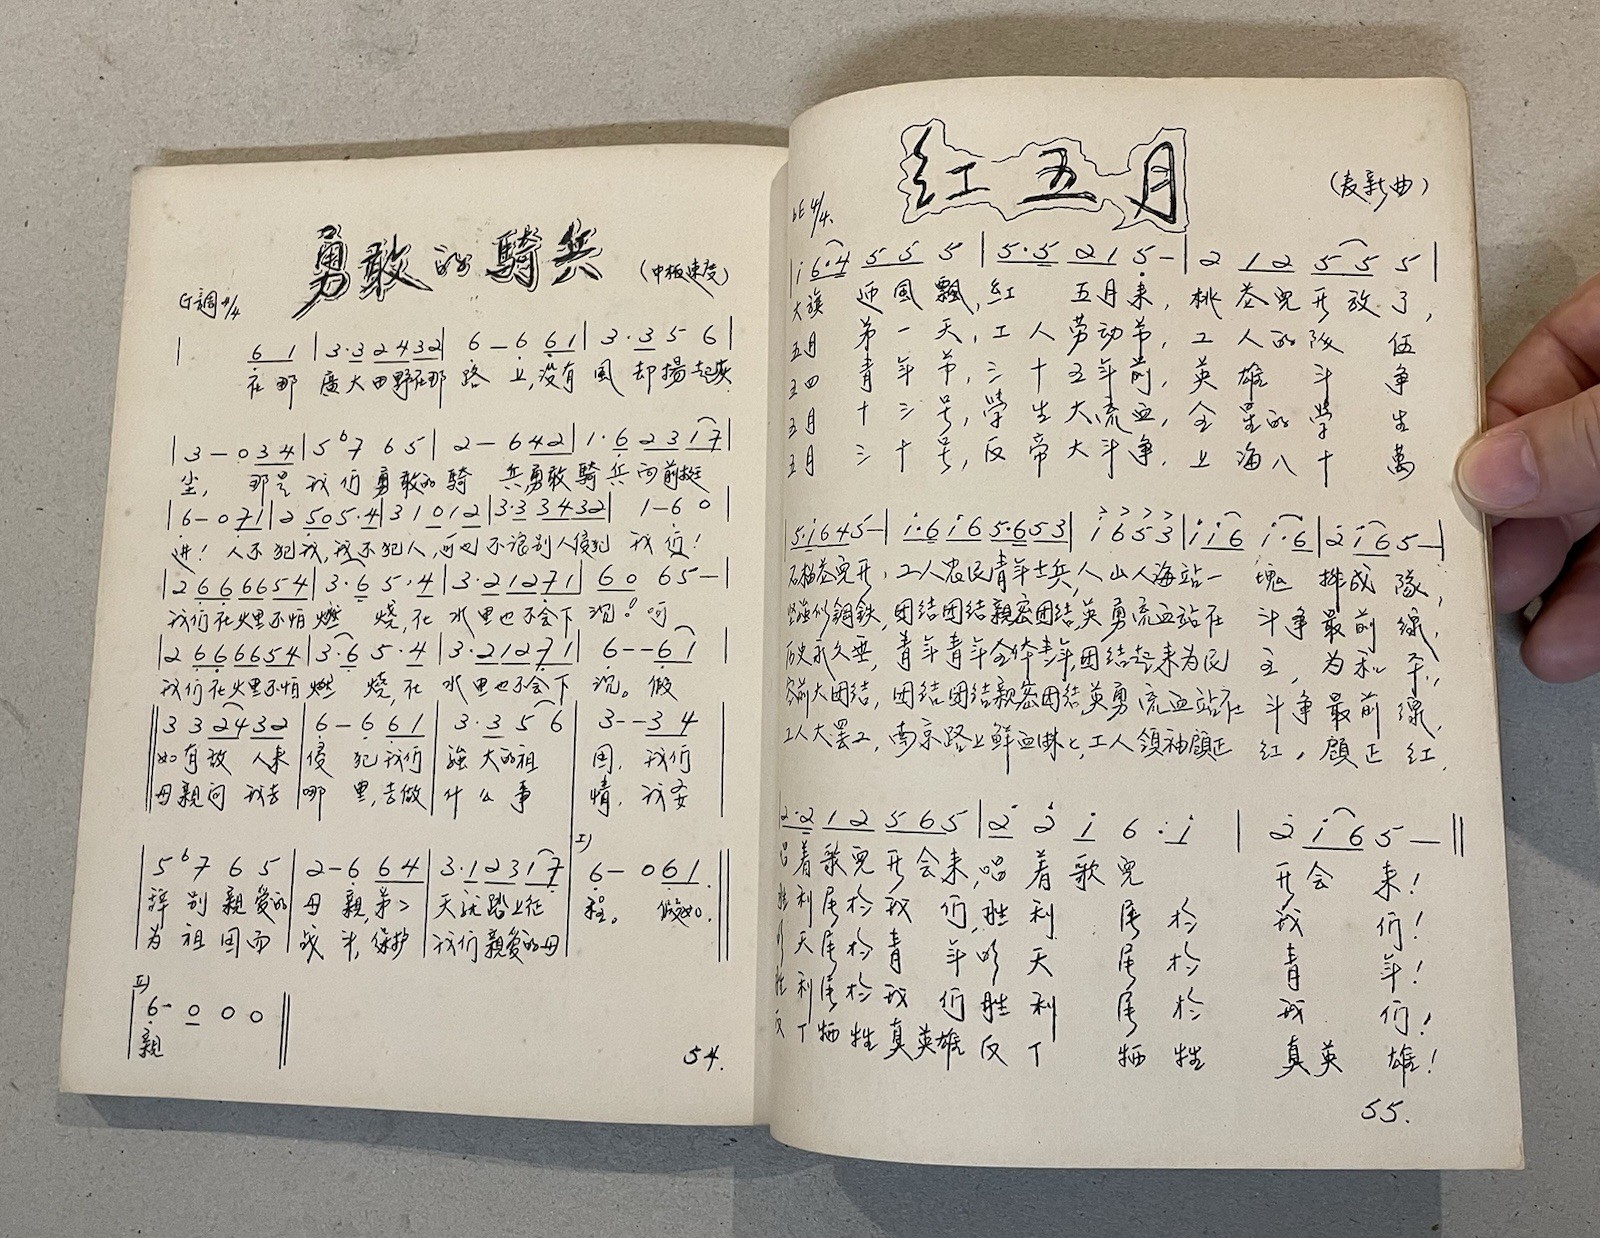 勇敢的騎兵
(中板速度)
G調4/4
| 6 1 | 3·3 2 4 3 2 | 6 — 6 6 1 | 3·3 5 6 |
在那 廣大田野在那 路 上,没有 風 却揚起灰
| 3 — 0 3 4 | 5 b7 6 5 | 2 — 6 4 2 | 1·6 2 3 1 7 |
尘, 那是 我们 勇敢的 騎 兵勇敢騎兵向前挺
| 6 — 0 7 1 | 2 5 0 5·4 | 3 1 0 1 2 | 3·3 3 4 3 2 | 1 — 6 0 |
进! 人不犯我,我不犯人,可也不讓别人侵犯 我们!
| 2 6 6 6 6 5 4 | 3·6 5·4 | 3·2 1 2 7 1 | 6 0 6 5 — |
我们在火里不怕燃 烧,在 水里也不会下 沉! 呵
| 2 6 6 6 6 5 4 | 3·6 5·4 | 3·2 1 2 7 1 | 6 — — 6 1 |
我们在火里不怕燃 烧,在 水里也不会下 沉。 假
‖ 3 3 2 4 3 2 | 6 — 6 6 1 | 3·3 5 6 | 3 — — 3 4 |
如有敌 人来 侵 犯我们 強大的祖 国, 我们
母親问 我去 哪 里,去做 什么事 情, 我要
I)
| 5 b7 6 5 | 2 — 6 6 4 | 3·1 2 3 1 7 | 6 — 0 6 1 ‖
辞 别 親爱的 母 親,第二 天就踏上征 程。 假如
为 祖国而 战 斗,保护 我们親爱的母
II)
| 6 — 0 0 0 ‖
親
54.
红五月
(麦新曲)
bE 4/4.
| i 6·4 5 5 5 | 5·5 2 1 5 — | 2 1 2 5 5 5 |
大旗 迎風飄,红 五月来,桃花兒开放了,
五月 第一天,工人劳动节,工人的隊伍
五四 青年节,三十五年前,英雄斗争
五月 十三号,學生大流血,全星的學生
五月 三十号,反帝大斗争,上海八十萬
| 5·i 6 4 5 — | i·6 i 6 5·6 5 3 | i 6 5 3 | i i 6 i·6 | 2 i 6 5 — |
石榴花兒开,工人农民青年士兵,人山人海站一 塊 排成 隊,
坚強似鋼鉄,团结团结親密团结,英勇流血站在 斗争最前 線,
历史永久垂,青年青年全体青年,团结起来为民 主,为和 平,
空前大团结,团结团结親密团结,英勇流血站在 斗争最前 線,
工人大罢工,南京路上鮮血淋々,工人領袖顧正 红,顧正 红,
2·2 1 2 5 6 5 | 2 2 i 6·i | 2 i 6 5 — ‖
唱着歌兒开会来,唱着歌兒 开会 来!
胜利属於我们,胜利属於 我 们!
明天属於青年明天属於 青 年!
胜利属於我们胜利属於 我 们!
反丅牺牲真英雄反丅牺牲 真英 雄!
55.